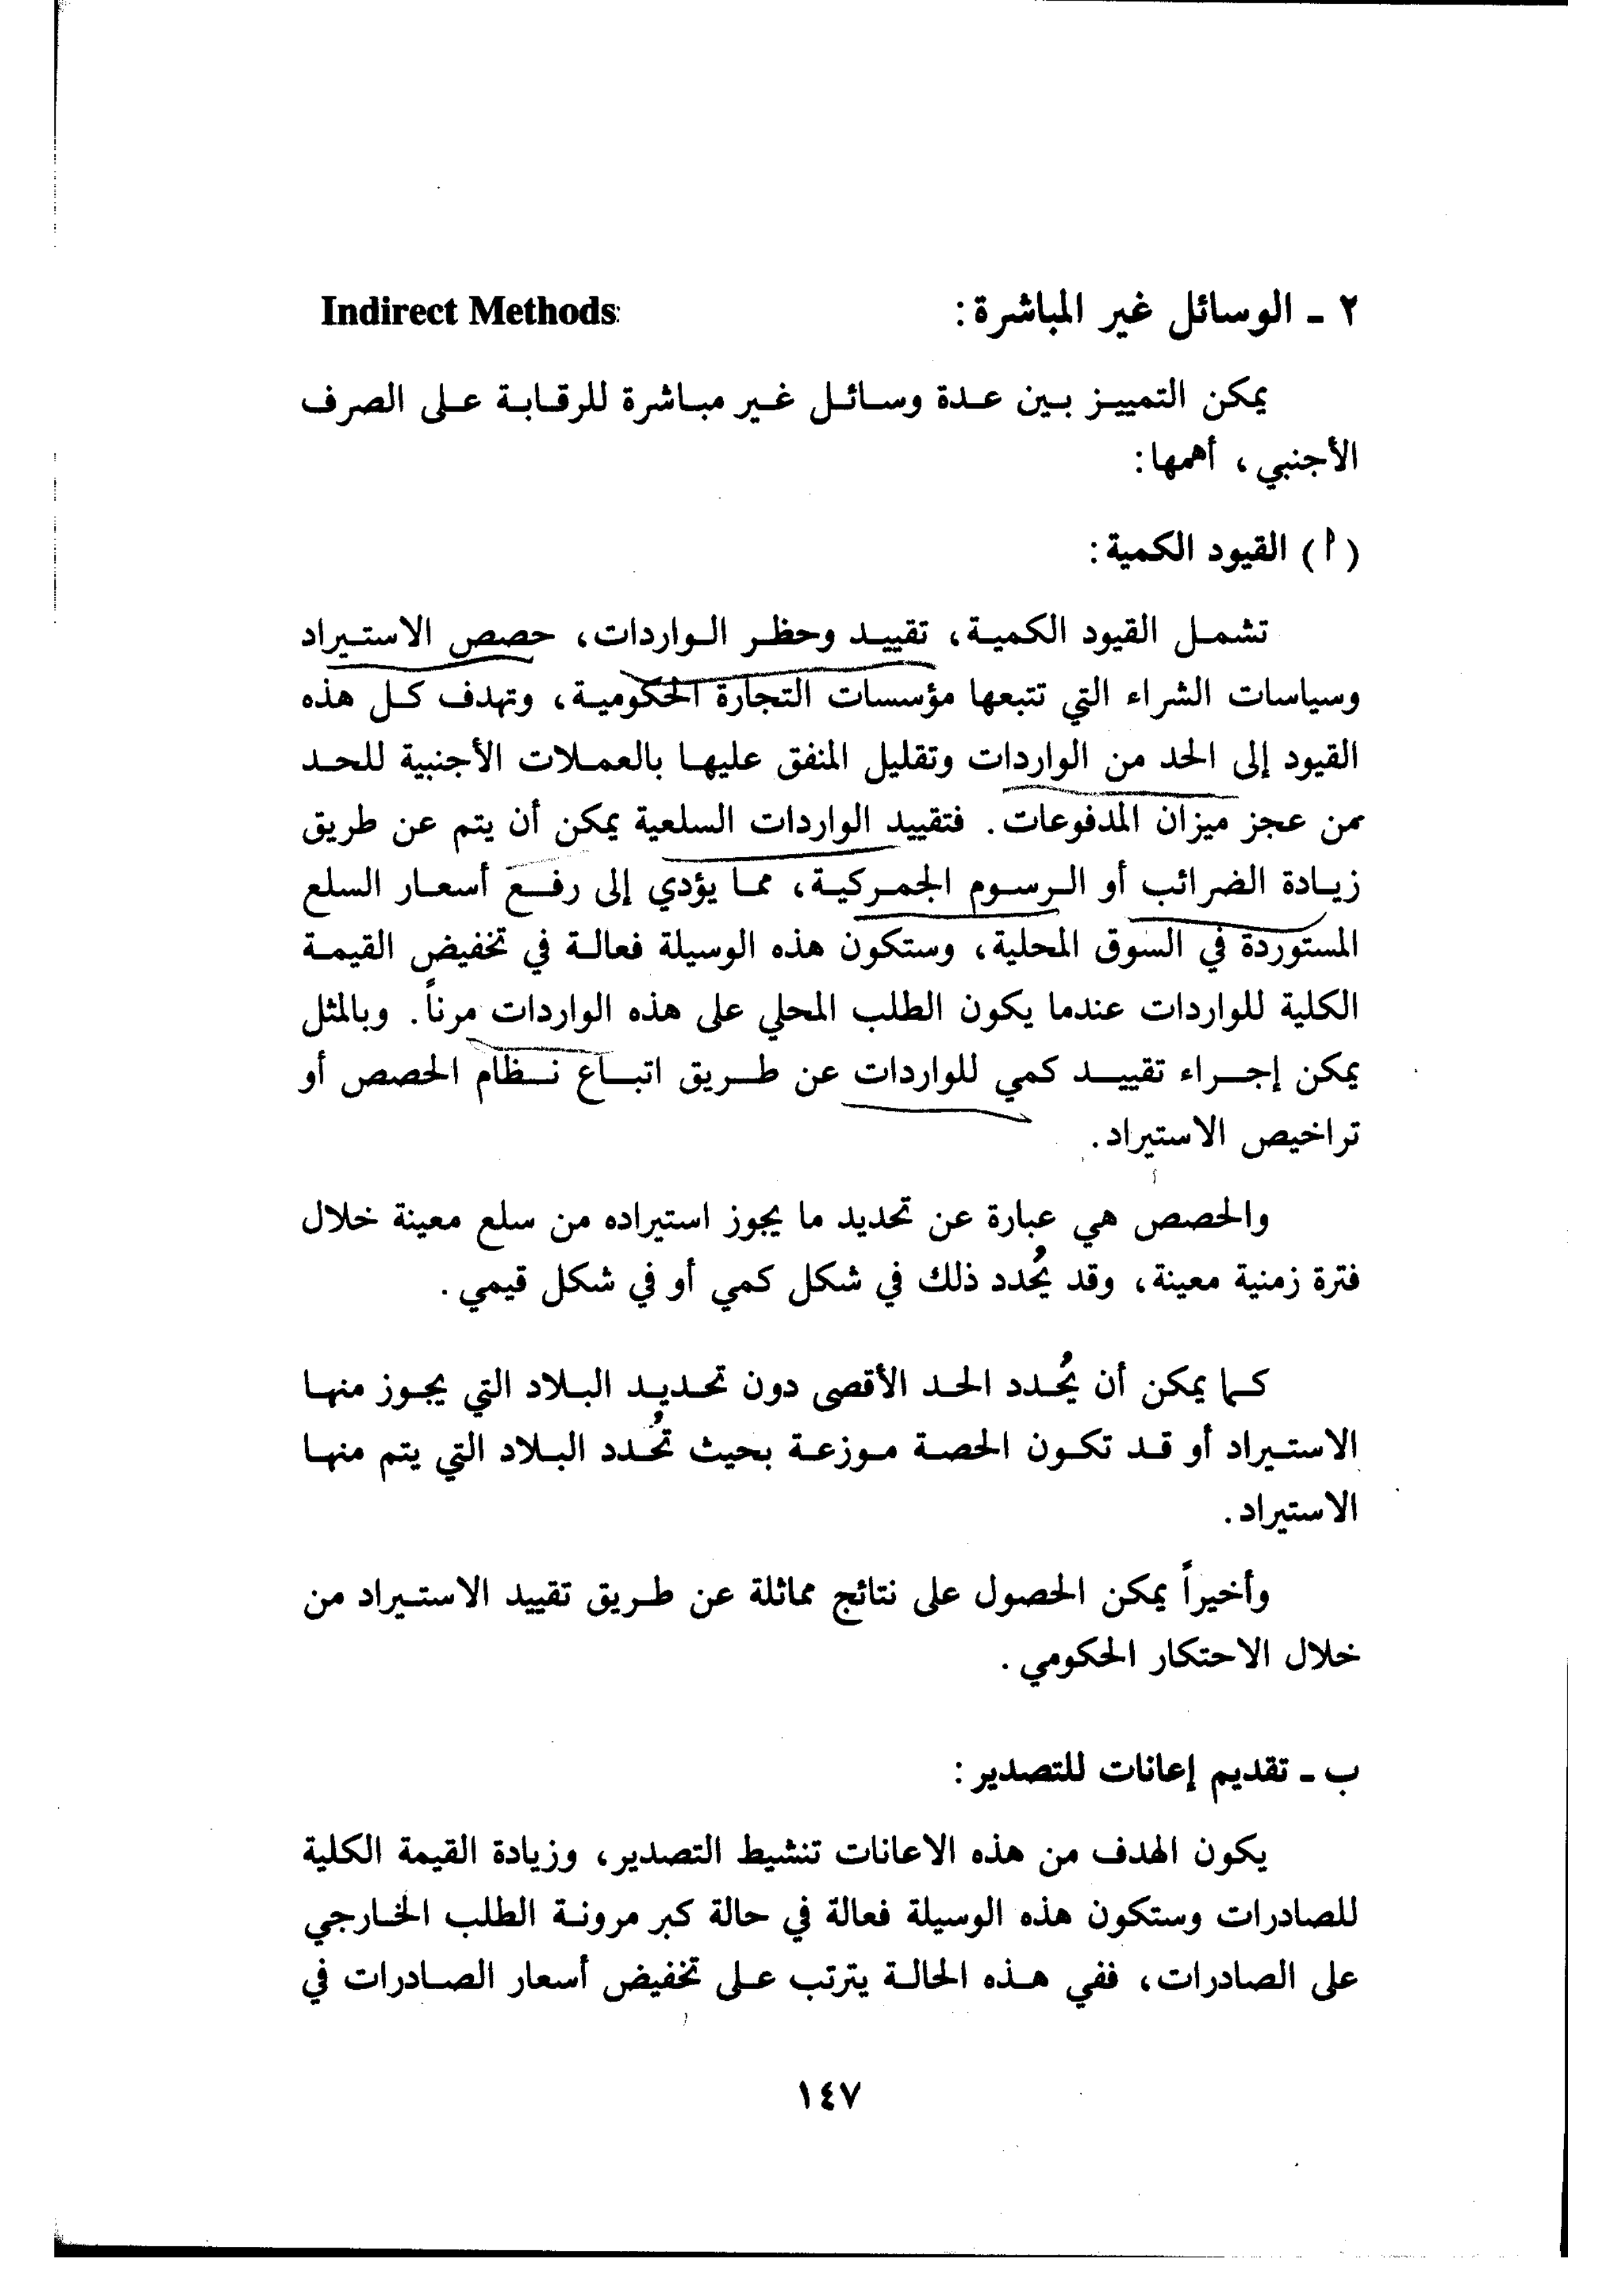 ٢ ـ الوسائل غير المباشرة: Indirect Methods:
يمكن التمييز بين عدة وسائل غير مباشرة للرقابة على الصرف
الأجنبي، أهمها:
(أ) القيود الكمية:
تشمل القيود الكمية، تقييد وحظر الواردات، حصص الاستيراد
وسياسات الشراء التي تتبعها مؤسسات التجارة الحكومية، وتهدف كل هذه
القيود إلى الحد من الواردات وتقليل المنفق عليها بالعملات الأجنبية للحد
من عجز ميزان المدفوعات. فتقييد الواردات السلعية يمكن أن يتم عن طريق
زيادة الضرائب أو الرسوم الجمركية، مما يؤدي إلى رفع أسعار السلع
المستوردة في السوق المحلية، وستكون هذه الوسيلة فعالة في تخفيض القيمة
الكلية للواردات عندما يكون الطلب المحلي على هذه الواردات مرناً. وبالمثل
يمكن إجراء تقييد كمي للواردات عن طريق اتباع نظام الحصص أو
تراخيص الاستيراد.
والحصص هي عبارة عن تحديد ما يجوز استيراده من سلع معينة خلال
فترة زمنية معينة، وقد يُحدد ذلك في شكل كمي أو في شكل قيمي.
كما يمكن أن يُحدد الحد الأقصى دون تحديد البلاد التي يجوز منها
الاستيراد أو قد تكون الحصة موزعة بحيث تُحدد البلاد التي يتم منها
الاستيراد.
وأخيراً يمكن الحصول على نتائج مماثلة عن طريق تقييد الاستيراد من
خلال الاحتكار الحكومي.
ب ـ تقديم إعانات للتصدير:
يكون الهدف من هذه الاعانات تنشيط التصدير، وزيادة القيمة الكلية
للصادرات وستكون هذه الوسيلة فعالة في حالة كبر مرونة الطلب الخارجي
على الصادرات، ففي هذه الحالة يترتب على تخفيض أسعار الصادرات في
١٤٧